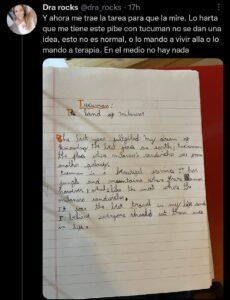 Dra rocks @dra_rocks · 17h
Y ahora me trae la tarea para que la mire. Lo harta
que me tiene este pibe con tucuman no se dan una
idea, esto no es normal, o lo mando a vivir alla o lo
mando a terapia. En el medio no hay nada
Tucuman:
The land of milanesa
The last year fulfilled my dream of
knowing the best place on earth, tucuman
the place where milanesa's sandwich are from
another galaxy.
tucuman is a beautiful because it has
jungle and mountains
however, what I like the most was the
milanesa sandwich,
It was the best travel in my life and
I believe everyone should eat there once
in life.